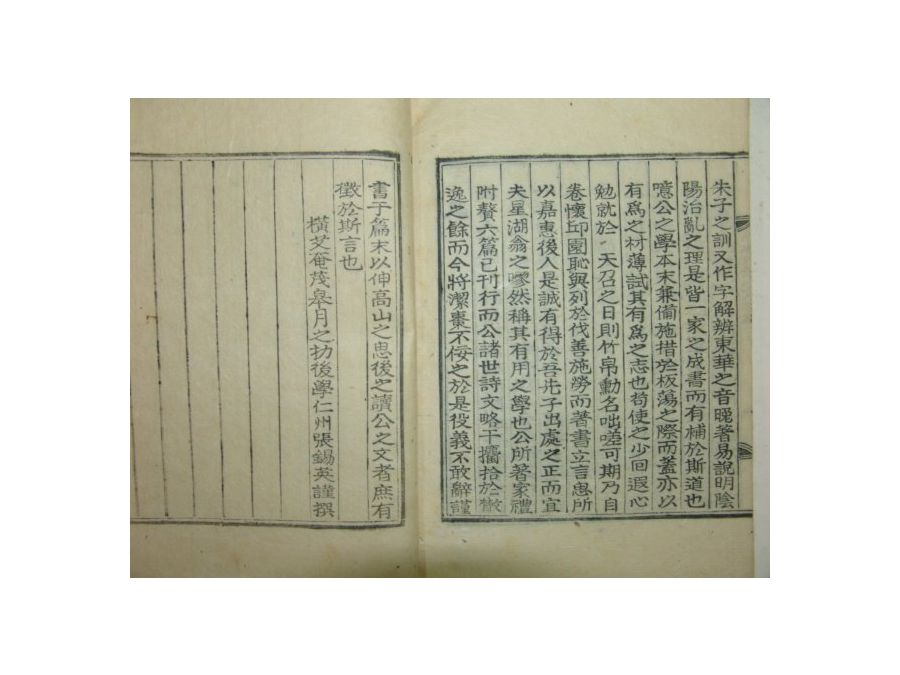 朱子之訓又作字解辨東華之音晚著易說明陰
陽治亂之理是皆一家之成書而有補於斯道也
噫公之學本末兼備施措於板蕩之際而蓋亦以
有爲之材薄試其有爲之志也苟使之少回遐心
勉就於 天召之日則竹帛勳名咄嗟可期乃自
卷懷邱園恥與列於伐善施勞而著書立言思所
以嘉惠後人是誠有得於吾先子出處之正而宜
夫星湖翁之嘐然稱其有用之學也公所著家禮
附贅六篇已刊行而公諸世詩文略干攟拾於散
逸之餘而今將潔棗不侫之於是役義不敢辭謹
書于篇末以伸高山之思後之讀公之文者庶有
徵於斯言也
橫艾奄茂皋月之 後學仁州張錫英謹撰